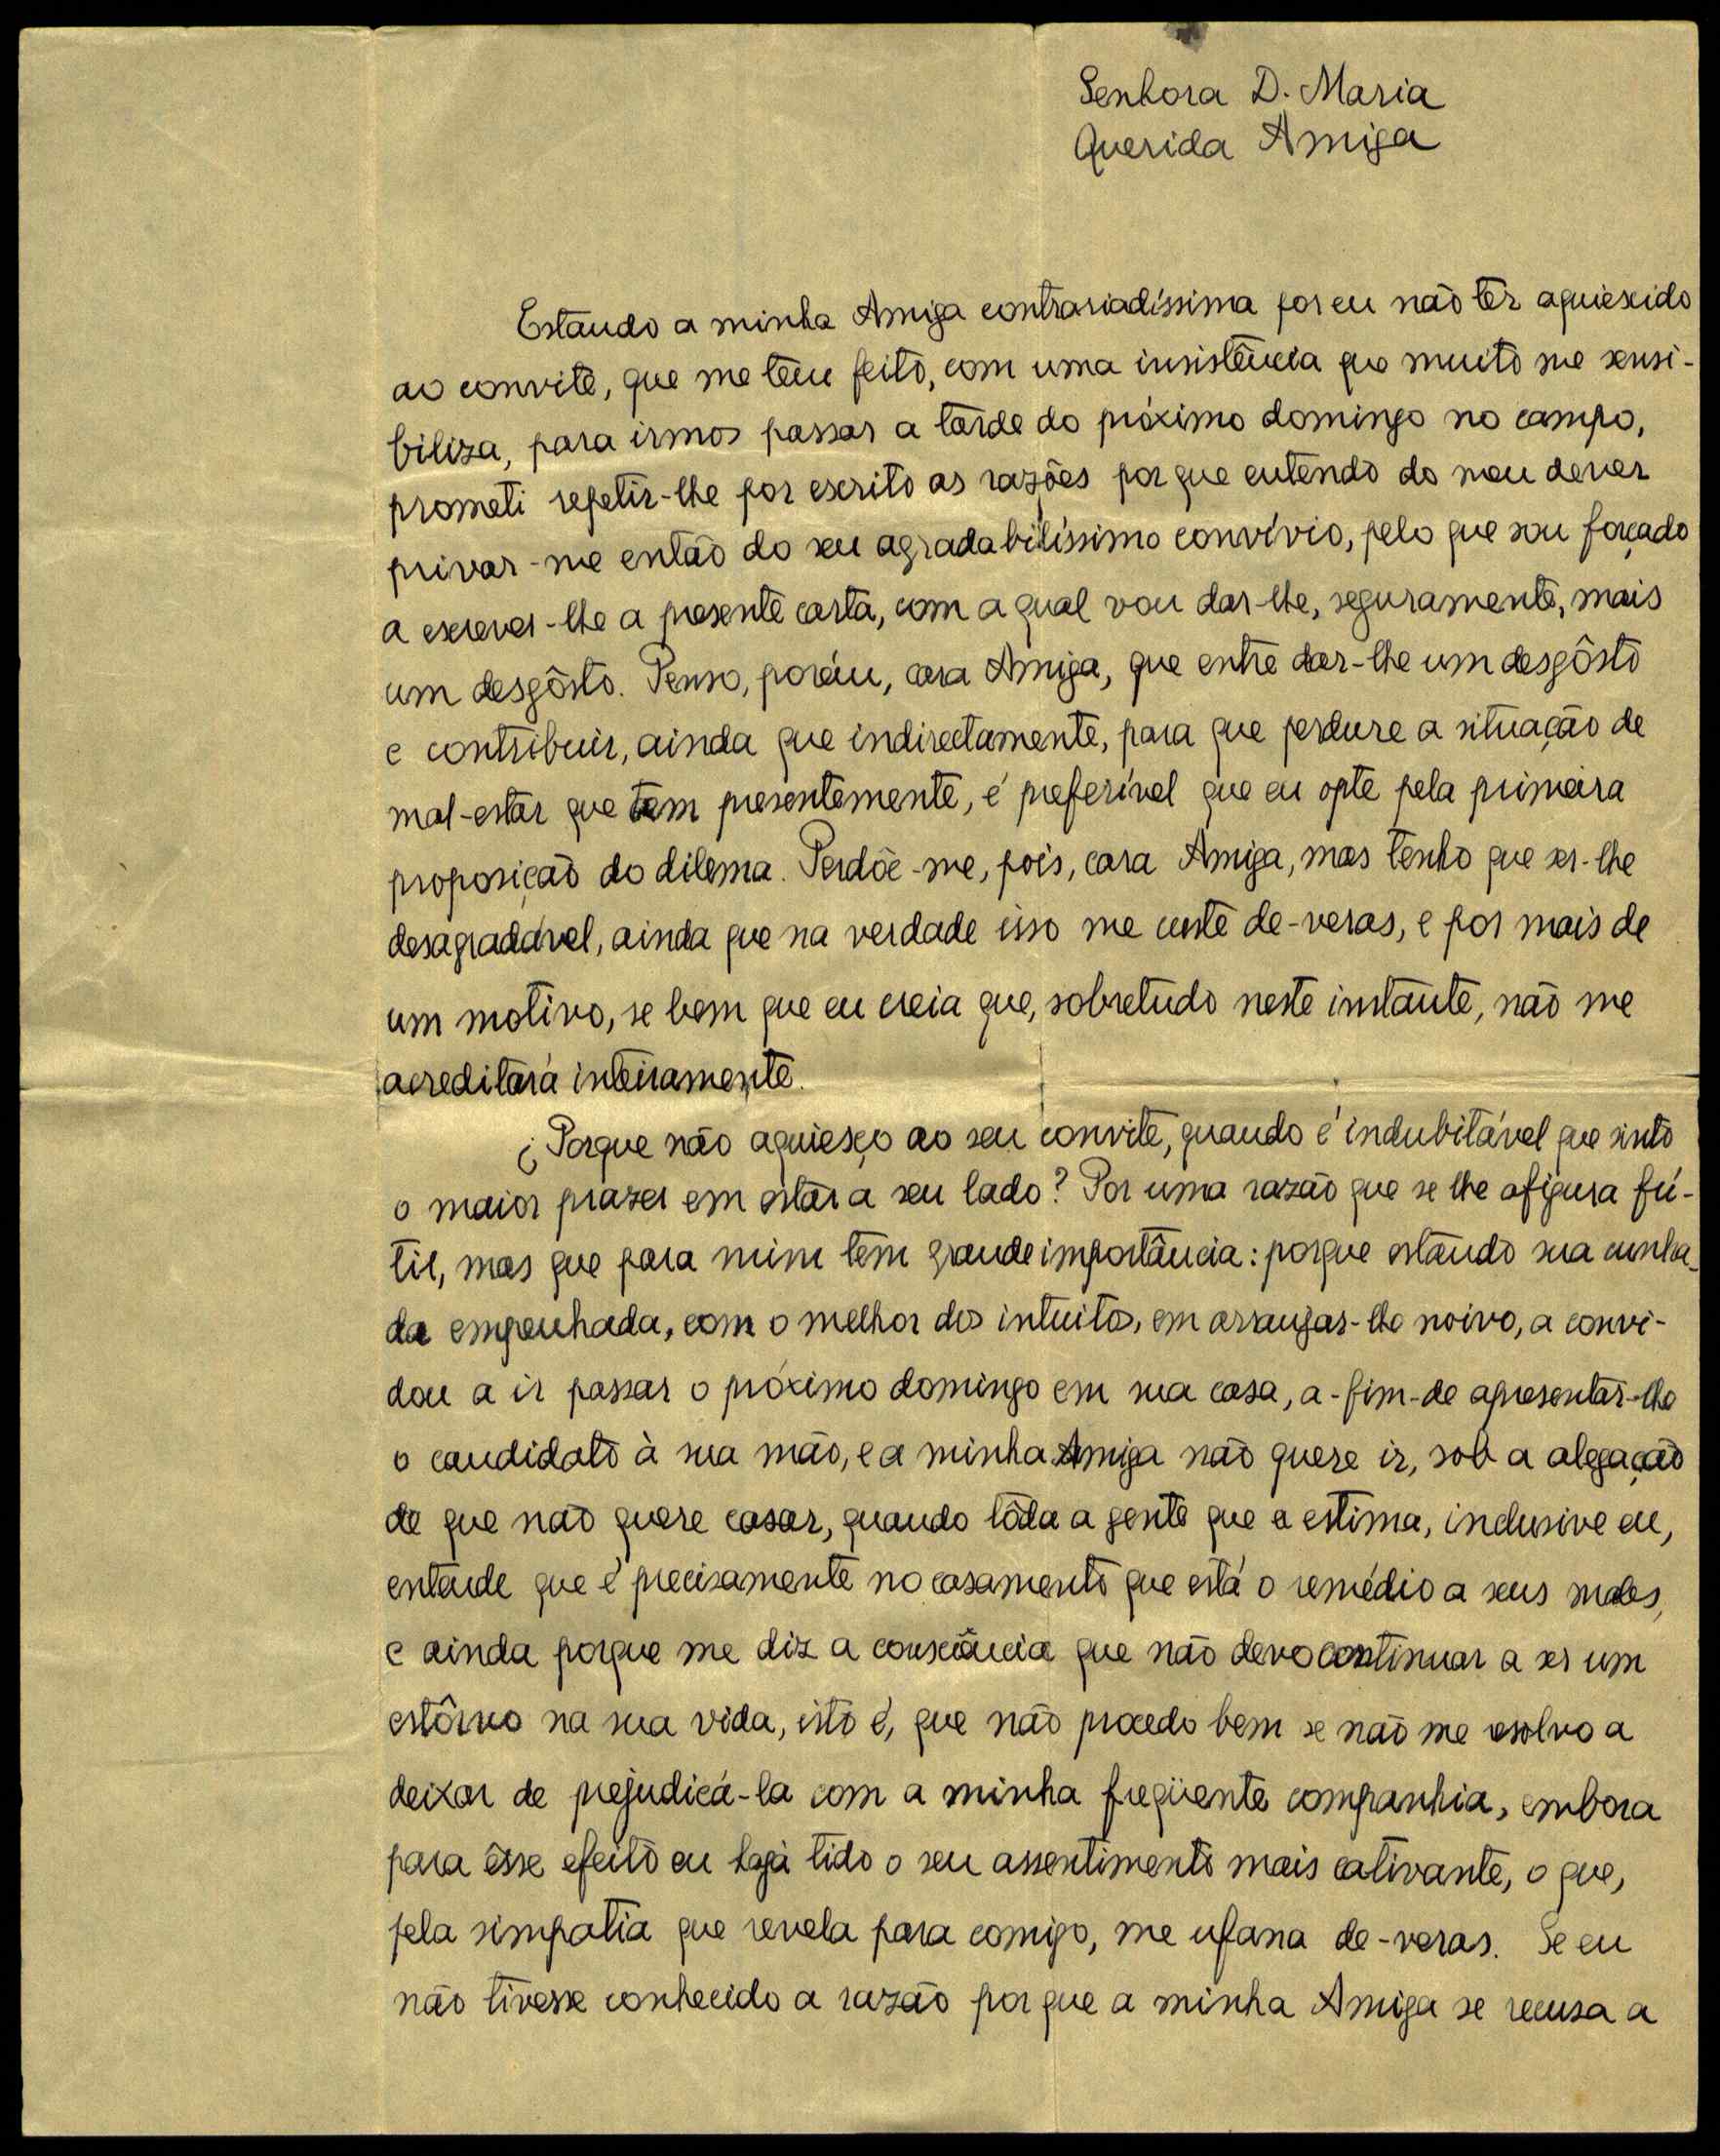 Senhora D. Maria
Querida Amiga
Estando a minha Amiga contrariadíssima por eu não ter aquiescido
ao convite, que me tem feito, com uma insistência que muito me sensi-
biliza, para irmos passar a tarde do próximo domingo no campo,
prometi repetir-lhe por escrito as razões por que entendo do meu dever
privar-me então do seu agradabilíssimo convívio, pelo que sou forçado
a escrever-lhe a presente carta, com a qual vou dar-lhe, seguramente, mais
um desgôsto. Penso, porém, cara Amiga, que entre dar-lhe um desgôsto
e contribuir, ainda que indirectamente, para que perdure a situação de
mal-estar que tem presentemente, é preferível que eu opte pela primeira
proposição do dilema. Perdôe-me, pois, cara Amiga, mas tenho que ser-lhe
desagradável, ainda que na verdade isso me custe de-veras, e por mais de
um motivo, se bem que eu creia que, sobretudo neste instante, não me
acreditará inteiramente.
¿Porque não aquiesço ao seu convite, quando é indubitável que sinto
o maior prazer em estar a seu lado? Por uma razão que se lhe afigura fú-
til, mas que para mim tem grande importância: porque estando sua cunha-
da empenhada, com o melhor dos intuitos, em arranjar-lhe noivo, a convi-
dou a ir passar o próximo domingo em sua casa, a-fim-de apresentar-lhe
o candidato à sua mão, e a minha Amiga não quere ir, sob a alegação
de que não quere casar, quando tôda a gente que a estima, inclusive eu,
entende que é precisamente no casamento que está o remédio a seus males,
e ainda porque me diz a consciência que não devo continuar a ser um
estôrvo na sua vida, isto é, que não procedo bem se não me resolvo a
deixar de prejudicá-la com a minha freqüente companhia, embora
para êsse efeito eu haja tido o seu assentimento mais cativante, o que,
pela simpatia que revela para comigo, me ufana de-veras. Se eu
não tivesse conhecido a razão por que a minha Amiga se recusa a